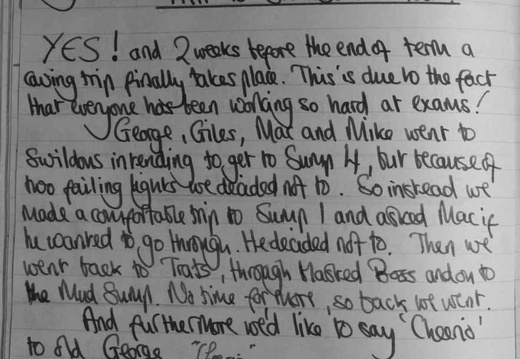 YES! and 2 weeks before the end of term a
caving trip finally takes place. This is due to the fact
that everyone has been working so hard at exams!
George, Giles, Mac and Mike went to
Swildons intending to get to Sump 4, but because of
two failing lights we decided not to. So instead we
made a comfortable trip to Sump 1 and asked Mac if
he wanted to go through. He decided not to. Then we
went back to Trats, through Masked Boss and on to
the Mud Sump. No time for more, so back we went.
And furthermore we'd like to say 'Cheerio'
to old George